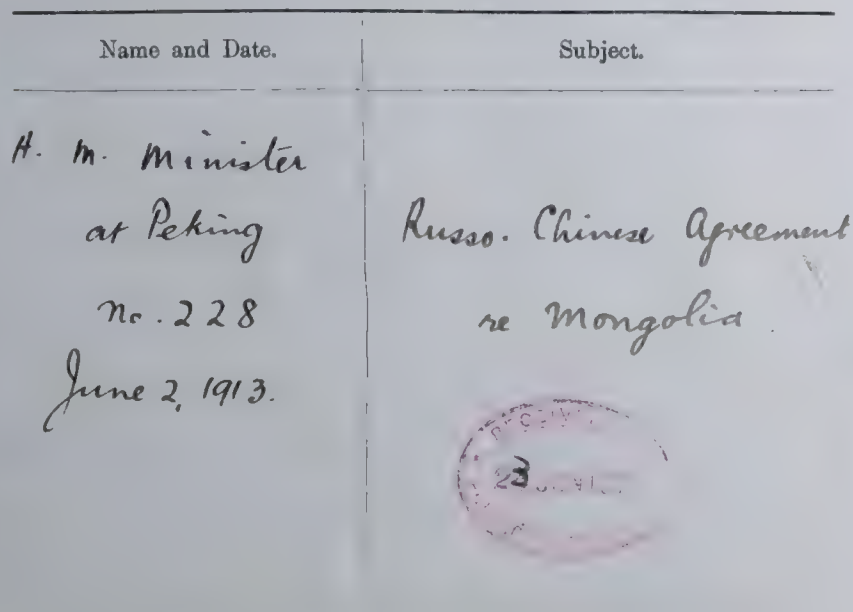 Name and Date.
Subject.
H. M. Minister
at Peking
No. 228
June 2, 1913.
Russo. Chinese Agreement
re Mongolia.
23